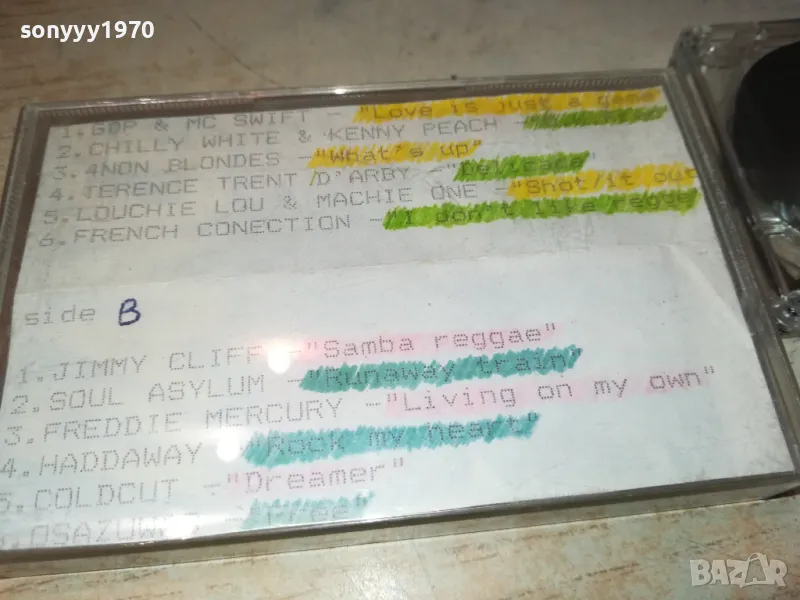 sonyyy1970
1.GDP & MC SWIFT - "Love is just a game"
2.CHILLY WHITE & KENNY PEACH -
3.4NON BLONDES -"What's up"
4.TERENCE TRENT D'ARBY -"Delicate"
5.LOUCHIE LOU & MACHIE ONE -"Shot/it out
6.FRENCH CONECTION -"I don't like regue
side B
1.JIMMY CLIFF -"Samba reggae"
2.SOUL ASYLUM -"Runaway train"
3.FREDDIE MERCURY -"Living on my own"
4.HADDAWAY -"Rock my heart"
5.COLDCUT -"Dreamer"
BAZAR